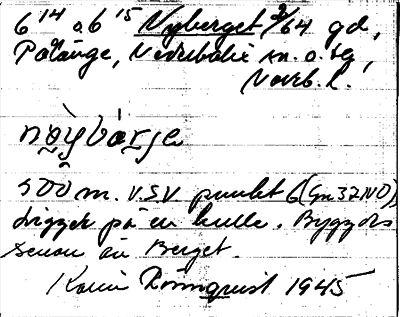 6¹⁴ o 6¹⁵ Nyberget 3/64 gd,
Påläng​e, Nederkalix sn. o. tg,
Norrb. l.
nøy̆bærje
500 m. V.SV punkt 6 (Gn 32NO),
Ligger på en kulle. Byggdes
senare än Berget.
Karin Rönnquist 1945